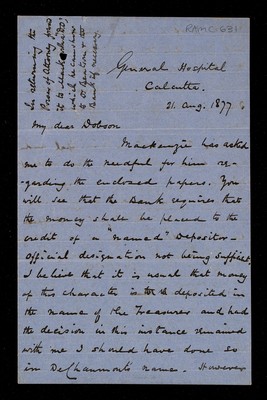 RAMC 631
In returning the
Power of Attorney pass
it to Mackenzie &c,
which he can show
to Deacon & the
Bank of necessary.
General Hospital
Calcutta.
21. Aug. 1877
My dear Dobson
Mackenzie has asked
me to do the needful for him re-
-garding the enclosed papers. You
will see that the Bank requires that
the money shall be placed to the
credit of a "named" Depositor -
Official designation not being sufficient.
I believe that it is usual that money
of this character is to be deposited in
the name of the Treasurer and had
the decision in this instance remained
with me I should have done so
in DeChaumont's name. However